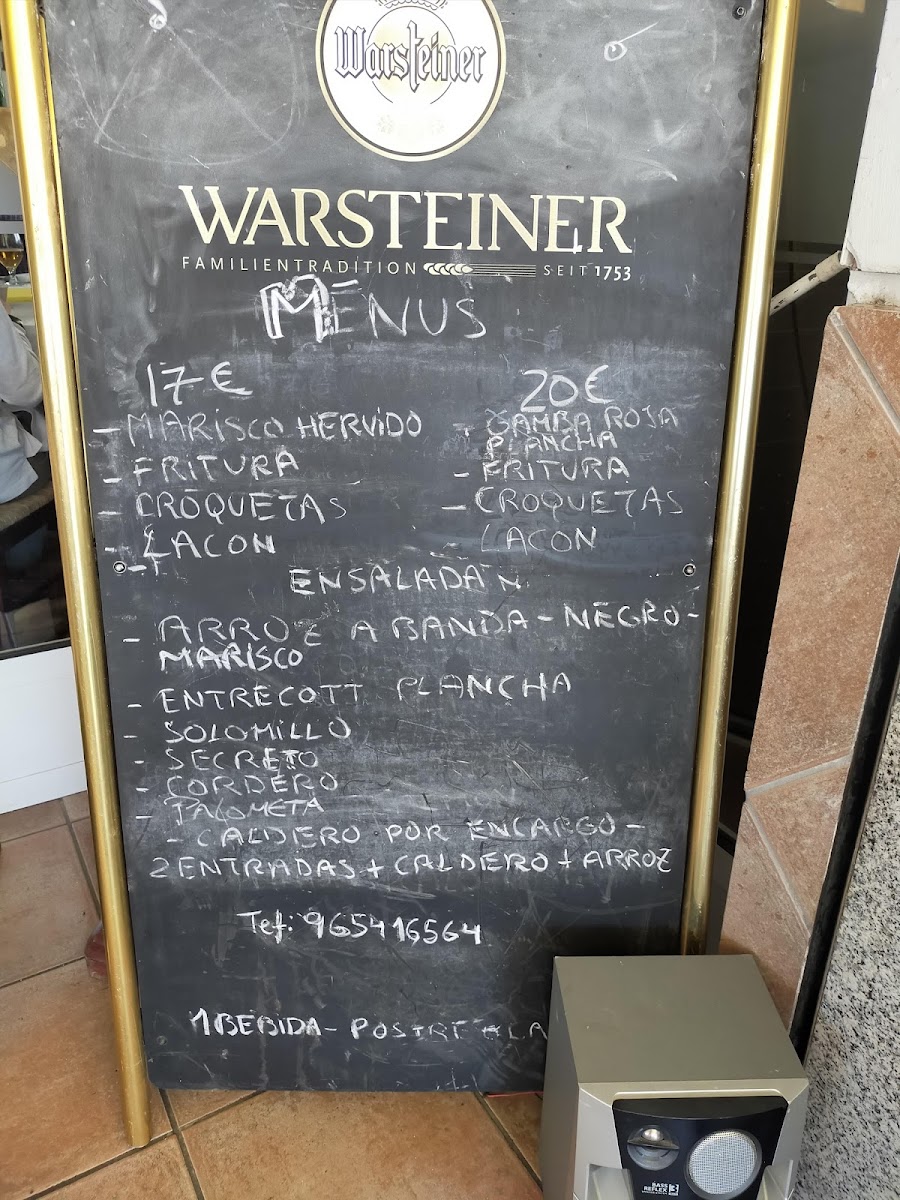 Warsteiner
WARSTEINER
FAMILIENTRADITION SEIT 1753
MENUS
17€
- MARISCO HERVIDO
- FRITURA
- CROQUETAS
- LACON
20€
- GAMBA ROJA
PLANCHA
- FRITURA
- CROQUETAS
LACON
ENSALADA
- ARROZ A BANDA - NEGRO -
MARISCO
- ENTRECOTT PLANCHA
- SOLOMILLO
- SECRETO
- CORDERO
- PALOMETA
- CALDERO POR ENCARGO -
2 ENTRADAS + CALDERO + ARROZ
Tef: 965416564
1 BEBIDA - POSTRE
BASS
REFLEX